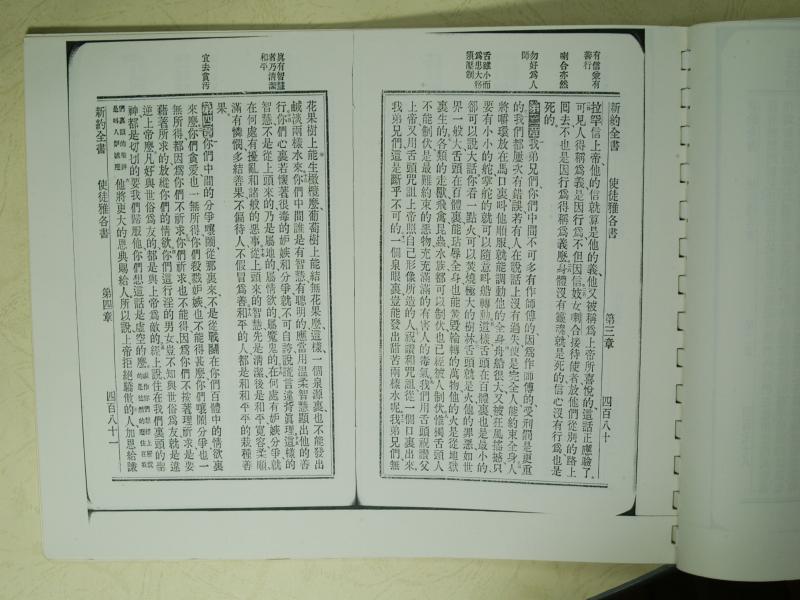 新約全書
使徒雅各書
第三章
四百八十
有信兼有善行
喇合亦然
勿好為人師
舌雖小而為患大務須壓制
拉罕信上帝他的信就算是他的義他又被稱為上帝所喜悅的這話正應驗了
可見人得稱為義是因行為不但因信妓女喇合接待使者放他們從別的路上
回去不也是因行為得稱為義麼身體沒有靈魂就是死的信心沒有行為也是
死的
第三章我弟兄們你們中間不可多有作師傅的因為作師傅的受刑罰是更重
的我們都屢次有錯誤若有人在說話上沒有過失便是些全人能約束全身人
將嚼環放在馬口裏叫他順服就能調動他的全身船雖大又被狂風搖撼只
要有小小的舵掌舵的就可以隨意叫船轉動這樣舌頭在百體裏也是最小的
卻可以說大話你看一點火可以焚燒極大的樹林舌頭就是火他的罪惡如世
界一般大舌頭在百體裏能玷辱全身也能焚毀輪轉的萬物他的火是從地獄
裏生的各類的走獸飛禽昆蟲水族都可以制伏也已經被人制伏惟獨舌頭人
不能制伏是最難約束的惡物充充滿滿的有害人的毒氣我們用舌頭祝讚父
上帝又用舌頭咒詛上帝照自己形像所造的人祝讚和咒詛從一個口裏出來
我弟兄們這是斷乎不可的一個泉眼裏豈能發出甜苦兩樣水呢我弟兄們無
真有智慧者乃清潔和平
宜去貪污
花果樹上能生橄欖麼葡萄樹上能結無花果麼這樣一個泉源裏也不能發出
鹹淡兩樣水來你們中間誰是有智慧有聰明的應當用溫柔智慧顯出他的善
行你們心裏若懷著很毒的嫉妬和分爭就不可自誇說謊言違背真理這樣的
智慧不是從上頭來的乃是屬地的屬情欲的屬魔鬼的在何處有嫉妬分爭就
在何處有擾亂和諸般的惡事從上頭來的智慧先是清潔後是和平寬容柔順
滿有憐憫多結善果不偏待人不假冒為善和平的人都是和和平平的栽種善
果
第四章你們中間的分爭嚷鬧從那裏來不是從戰鬭在你們百體中的情欲裏
來麼你們貪愛也一無所得你們殺戮嫉妬也不能得甚麼你們嚷鬧分爭也一
無所得都因為你們不祈求你們祈求也不能得因為你們不按著理祈求是要
藉著所求的放縱你們的情欲你們這行淫的男女豈不知與世俗為友就是違
逆上帝麼凡好與世俗為友的都是與上帝為敵的經上說住在我們裏頭的聖
神都是切切的要我們歸服他你們想這話是虛空的麼
他將更大的恩典賜給人所以說上帝拒絕驕傲的人加恩給謙
新約全書
使徒雅各書
第四章
四百八十一